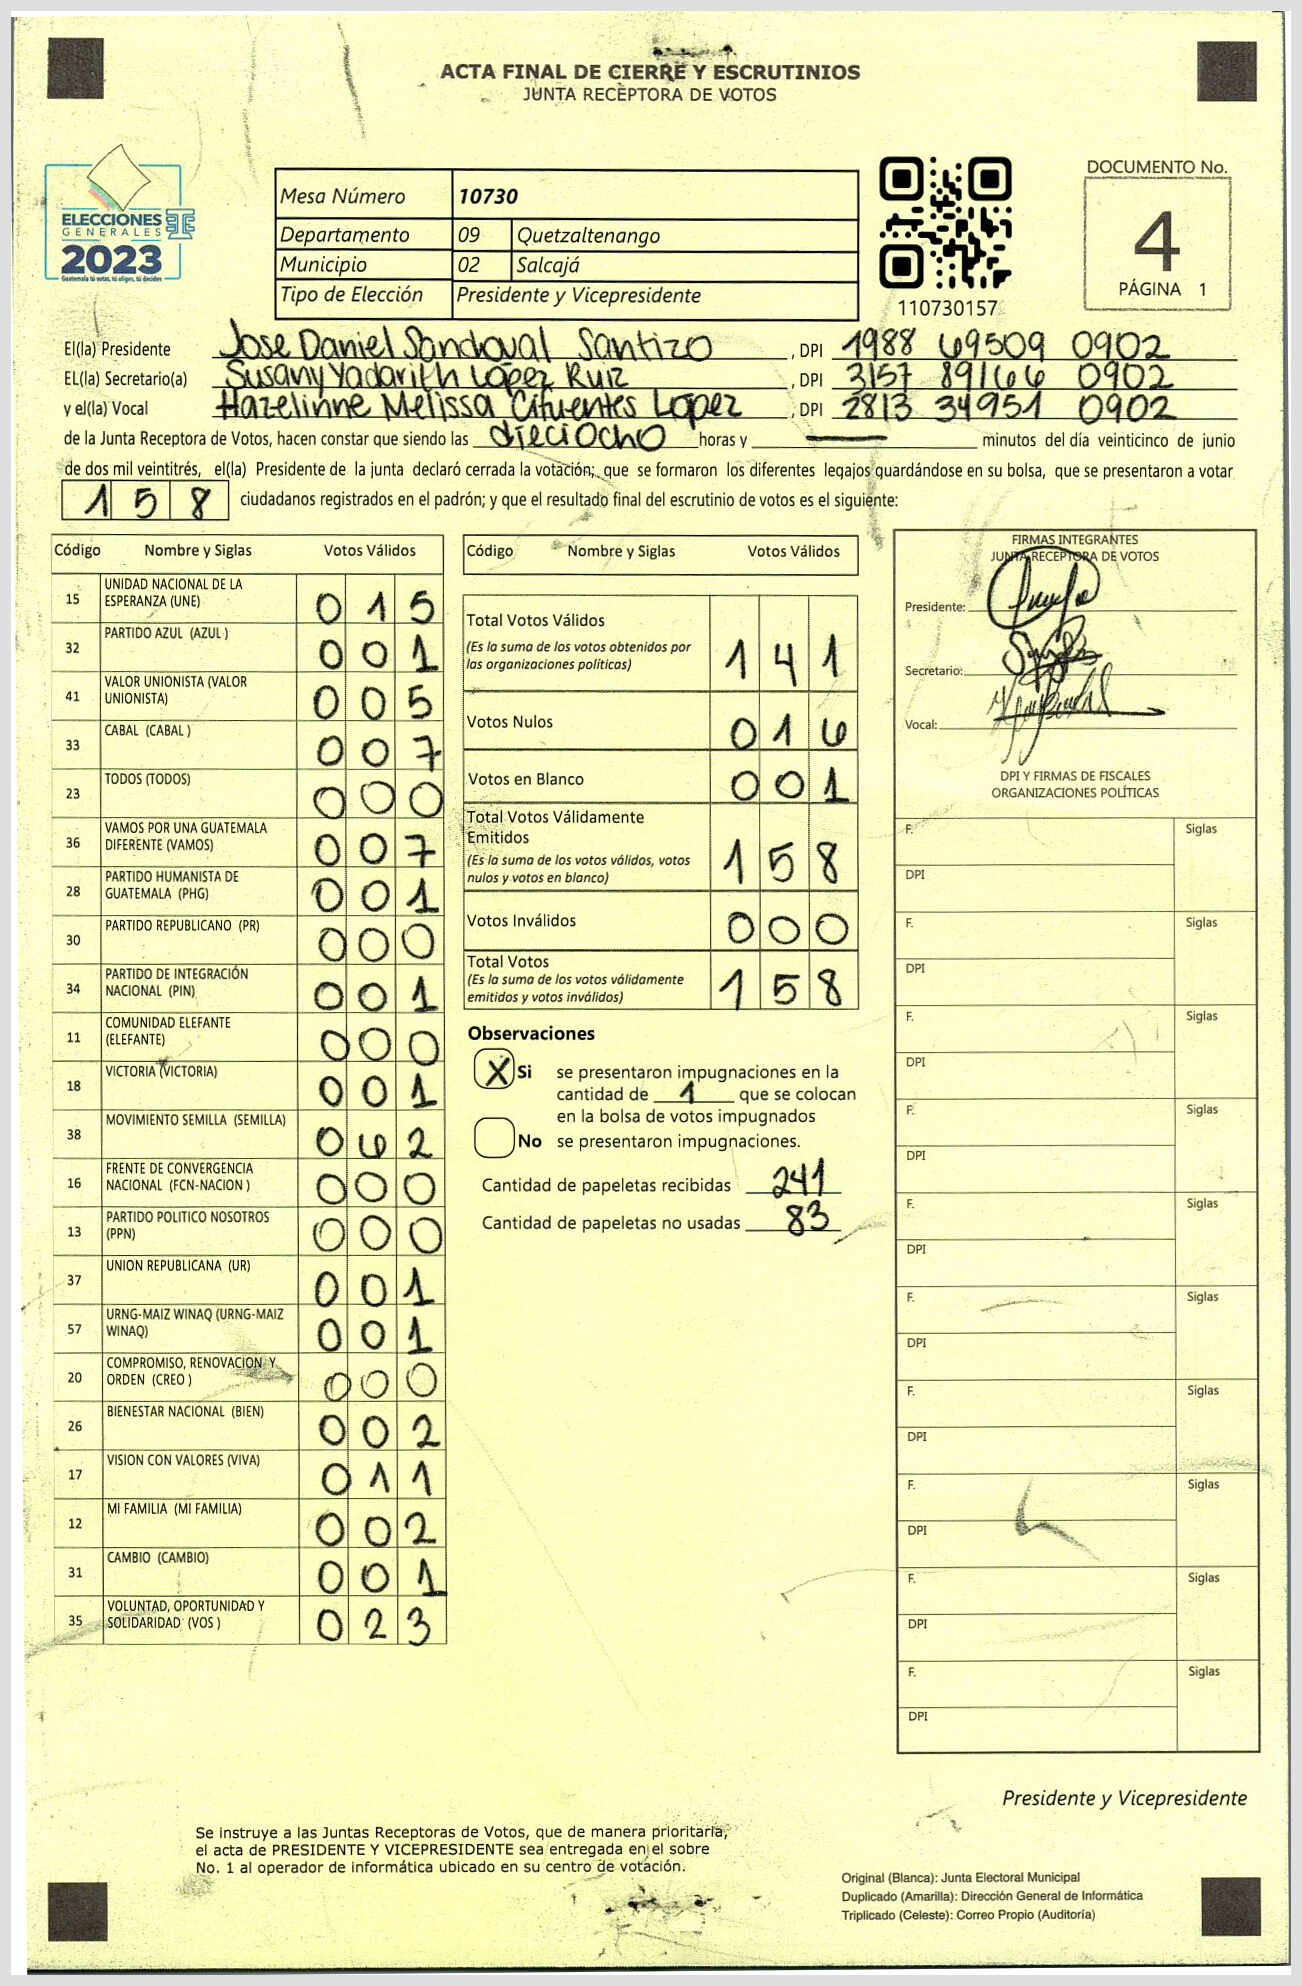 ACTA FINAL DE CIERRE Y ESCRUTINIOS
JUNTA RECEPTORA DE VOTOS
ELECCIONES
GENERALES
2023
Guatemala tú votas, tú eliges, tú decides
Mesa Número 10730
Departamento 09 Quetzaltenango
Municipio 02 Salcajá
Tipo de Elección Presidente y Vicepresidente
110730157
DOCUMENTO No.
4
PÁGINA 1
El(la) Presidente Jose Daniel Sandoval Santizo , DPI 1988 69509 0902
EL(la) Secretario(a) Susany Yadarith López Ruiz , DPI 3157 89166 0902
y el(la) Vocal Hazelinne Melissa Cifuentes López , DPI 2813 34951 0902
de la Junta Receptora de Votos, hacen constar que siendo las dieciocho horas y — minutos del día veinticinco de junio
de dos mil veintitrés, el(la) Presidente de la junta declaró cerrada la votación; que se formaron los diferentes legajos guardándose en su bolsa, que se presentaron a votar
158 ciudadanos registrados en el padrón; y que el resultado final del escrutinio de votos es el siguiente:
Código Nombre y Siglas Votos Válidos
15 UNIDAD NACIONAL DE LA
ESPERANZA (UNE) 015
32 PARTIDO AZUL (AZUL ) 001
41 VALOR UNIONISTA (VALOR
UNIONISTA) 005
33 CABAL (CABAL ) 007
23 TODOS (TODOS) 000
36 VAMOS POR UNA GUATEMALA
DIFERENTE (VAMOS) 007
28 PARTIDO HUMANISTA DE
GUATEMALA (PHG) 001
30 PARTIDO REPUBLICANO (PR) 000
34 PARTIDO DE INTEGRACIÓN
NACIONAL (PIN) 001
11 COMUNIDAD ELEFANTE
(ELEFANTE) 000
18 VICTORIA (VICTORIA) 001
38 MOVIMIENTO SEMILLA (SEMILLA) 062
16 FRENTE DE CONVERGENCIA
NACIONAL (FCN-NACION ) 000
13 PARTIDO POLITICO NOSOTROS
(PPN) 000
37 UNION REPUBLICANA (UR) 001
57 URNG-MAIZ WINAQ (URNG-MAIZ
WINAQ) 001
20 COMPROMISO, RENOVACION Y
ORDEN (CREO ) 000
26 BIENESTAR NACIONAL (BIEN) 002
17 VISION CON VALORES (VIVA) 011
12 MI FAMILIA (MI FAMILIA) 002
31 CAMBIO (CAMBIO) 001
35 VOLUNTAD, OPORTUNIDAD Y
SOLIDARIDAD (VOS ) 023
Código Nombre y Siglas Votos Válidos
Total Votos Válidos
(Es la suma de los votos obtenidos por
las organizaciones políticas) 141
Votos Nulos 016
Votos en Blanco 001
Total Votos Válidamente
Emitidos
(Es la suma de los votos válidos, votos
nulos y votos en blanco) 158
Votos Inválidos 000
Total Votos
(Es la suma de los votos válidamente
emitidos y votos inválidos) 158
Observaciones
X Si se presentaron impugnaciones en la
cantidad de 1 que se colocan
en la bolsa de votos impugnados
No se presentaron impugnaciones.
Cantidad de papeletas recibidas 241
Cantidad de papeletas no usadas 83
FIRMAS INTEGRANTES
JUNTA RECEPTORA DE VOTOS
Presidente:
Secretario:
Vocal:
DPI Y FIRMAS DE FISCALES
ORGANIZACIONES POLÍTICAS
F. Siglas
DPI
F. Siglas
DPI
F. Siglas
DPI
F. Siglas
DPI
F. Siglas
DPI
F. Siglas
DPI
F. Siglas
DPI
F. Siglas
DPI
F. Siglas
DPI
F. Siglas
DPI
Presidente y Vicepresidente
Se instruye a las Juntas Receptoras de Votos, que de manera prioritaria,
el acta de PRESIDENTE Y VICEPRESIDENTE sea entregada en el sobre
No. 1 al operador de informática ubicado en su centro de votación.
Original (Blanca): Junta Electoral Municipal
Duplicado (Amarilla): Dirección General de Informática
Triplicado (Celeste): Correo Propio (Auditoría)